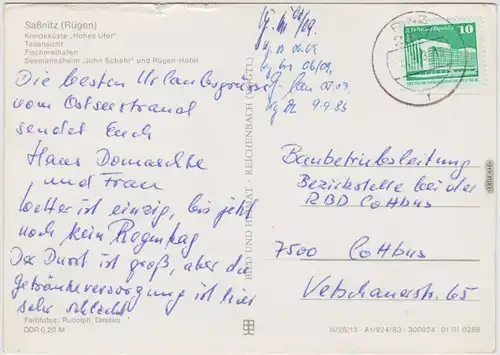 Saßnitz (Rügen)
Kreideküste „Hohes Ufer"
Teilansicht
Fischereihafen
Seemannsheim „John Schehr" und Rügen-Hotel
Die besten Urlaubsgrüße
vom Ostseestrand
sendet Euch
Hans Domaschke
und Frau
Wetter ist einzig, bis jetzt
noch kein Regentag
Der Durst ist groß, aber die
Getränkeversorgung ist hier
sehr schlecht!
Farbfotos: Rudolph, Dresden
DDR 0,20 M
BILD UND HEIMAT · REICHENBACH (VOGTL)
10
Baubetriebsleitung
Bezirksstelle bei der
RBD Cottbus
7500 Cottbus
Vetschauerstr. 65
III/26/13 A1/924/83 300924 01 01 0288